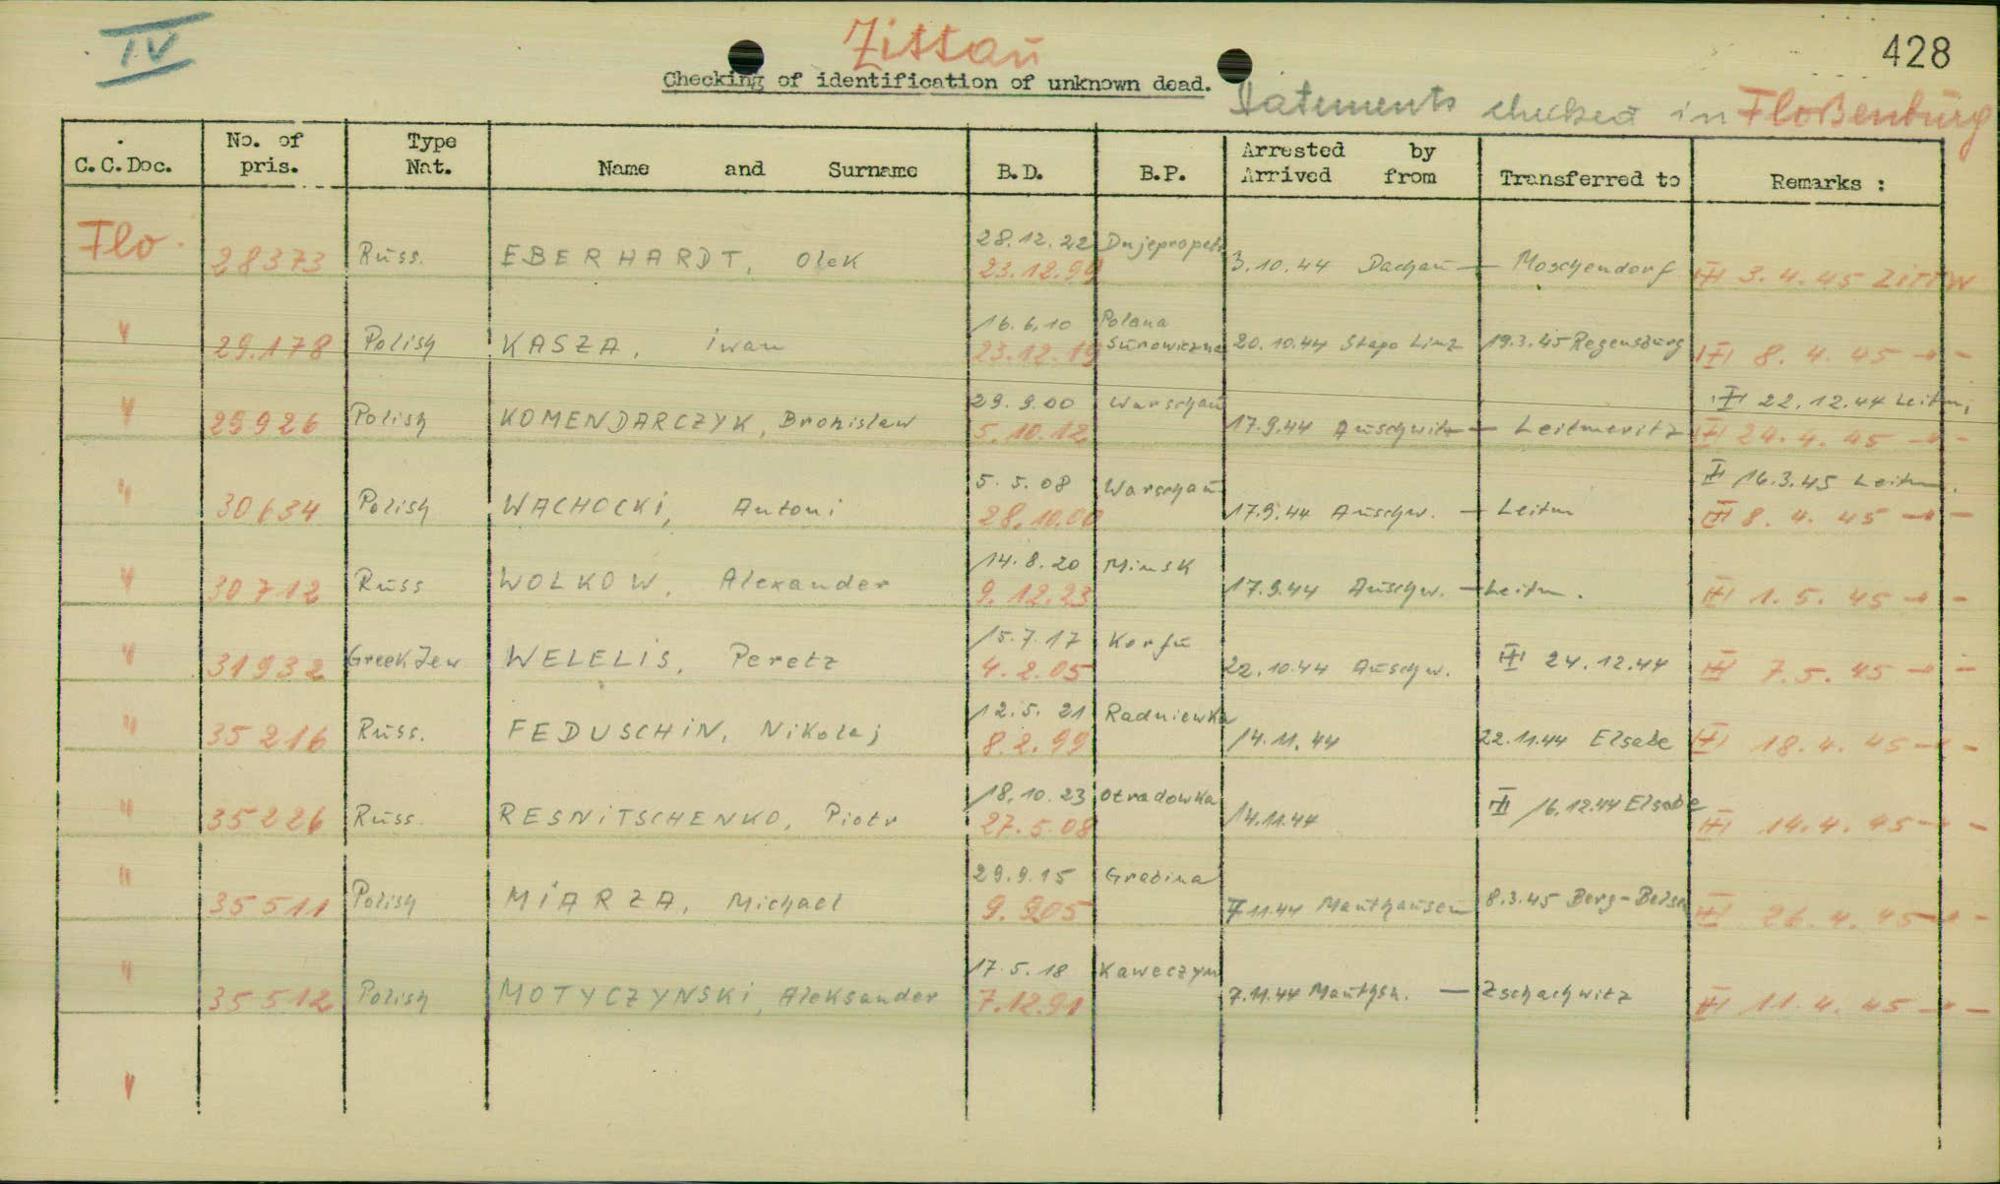 IV
Zittau
428
Checking of identification of unknown dead.
Statements checked in Floßenbürg
C.C.Doc. No. of pris. Type Nat. Name and Surname B.D. B.P. Arrested by Arrived from Transferred to Remarks :
28.12.22 Dnjepropetr
Flo. 28373 Russ. EBERHARDT, Olek 23.12.99 3.10.44 Dachau — Moschendorf 3.4.45 Zittau
16.6.10 Polana Surowiczna
" 29.178 Polish KASZA, Iwan 23.12.19 20.10.44 Stapo Linz 19.3.45 Regensburg 8.4.45 - " -
29.9.00 Warschau 22.12.44 Leitm.
" 29926 Polish KOMENDARCZYK, Bronislaw 5.10.12 17.9.44 Auschwitz — Leitmeritz 24.4.45 - " -
5.5.08 Warschau 16.3.45 Leitm.
" 30634 Polish WACHOCKI, Antoni 28.10.00 17.9.44 Auschw. — Leitm 8.4.45 - " -
14.8.20 Minsk
" 30712 Russ WOLKOW, Alexander 9.12.23 17.9.44 Auschw. — Leitm. 1.5.45 - " -
15.7.17 Korfu
" 31932 Greek Jew WELELIS, Peretz 4.2.05 22.10.44 Auschw. 24.12.44 7.5.45 - " -
12.5.21 Radniewka
" 35216 Russ. FEDUSCHIN, Nikolaj 8.2.99 14.11.44 22.11.44 Elsabe 18.4.45 - " -
18.10.23 Otradowka
" 35226 Russ. RESNITSCHENKO, Piotr 27.5.08 14.11.44 16.12.44 Elsabe 14.4.45 - " -
29.9.15 Grabina
" 35511 Polish MIARZA, Michael 9.905 7.11.44 Mauthausen 8.3.45 Berg-Belsen 26.4.45 - " -
17.5.18 Kaweczyn
" 35512 Polish MOTYCZYNSKI, Aleksander 7.12.91 7.11.44 Mauthsn. — Zschachwitz 11.4.45 - " -
"